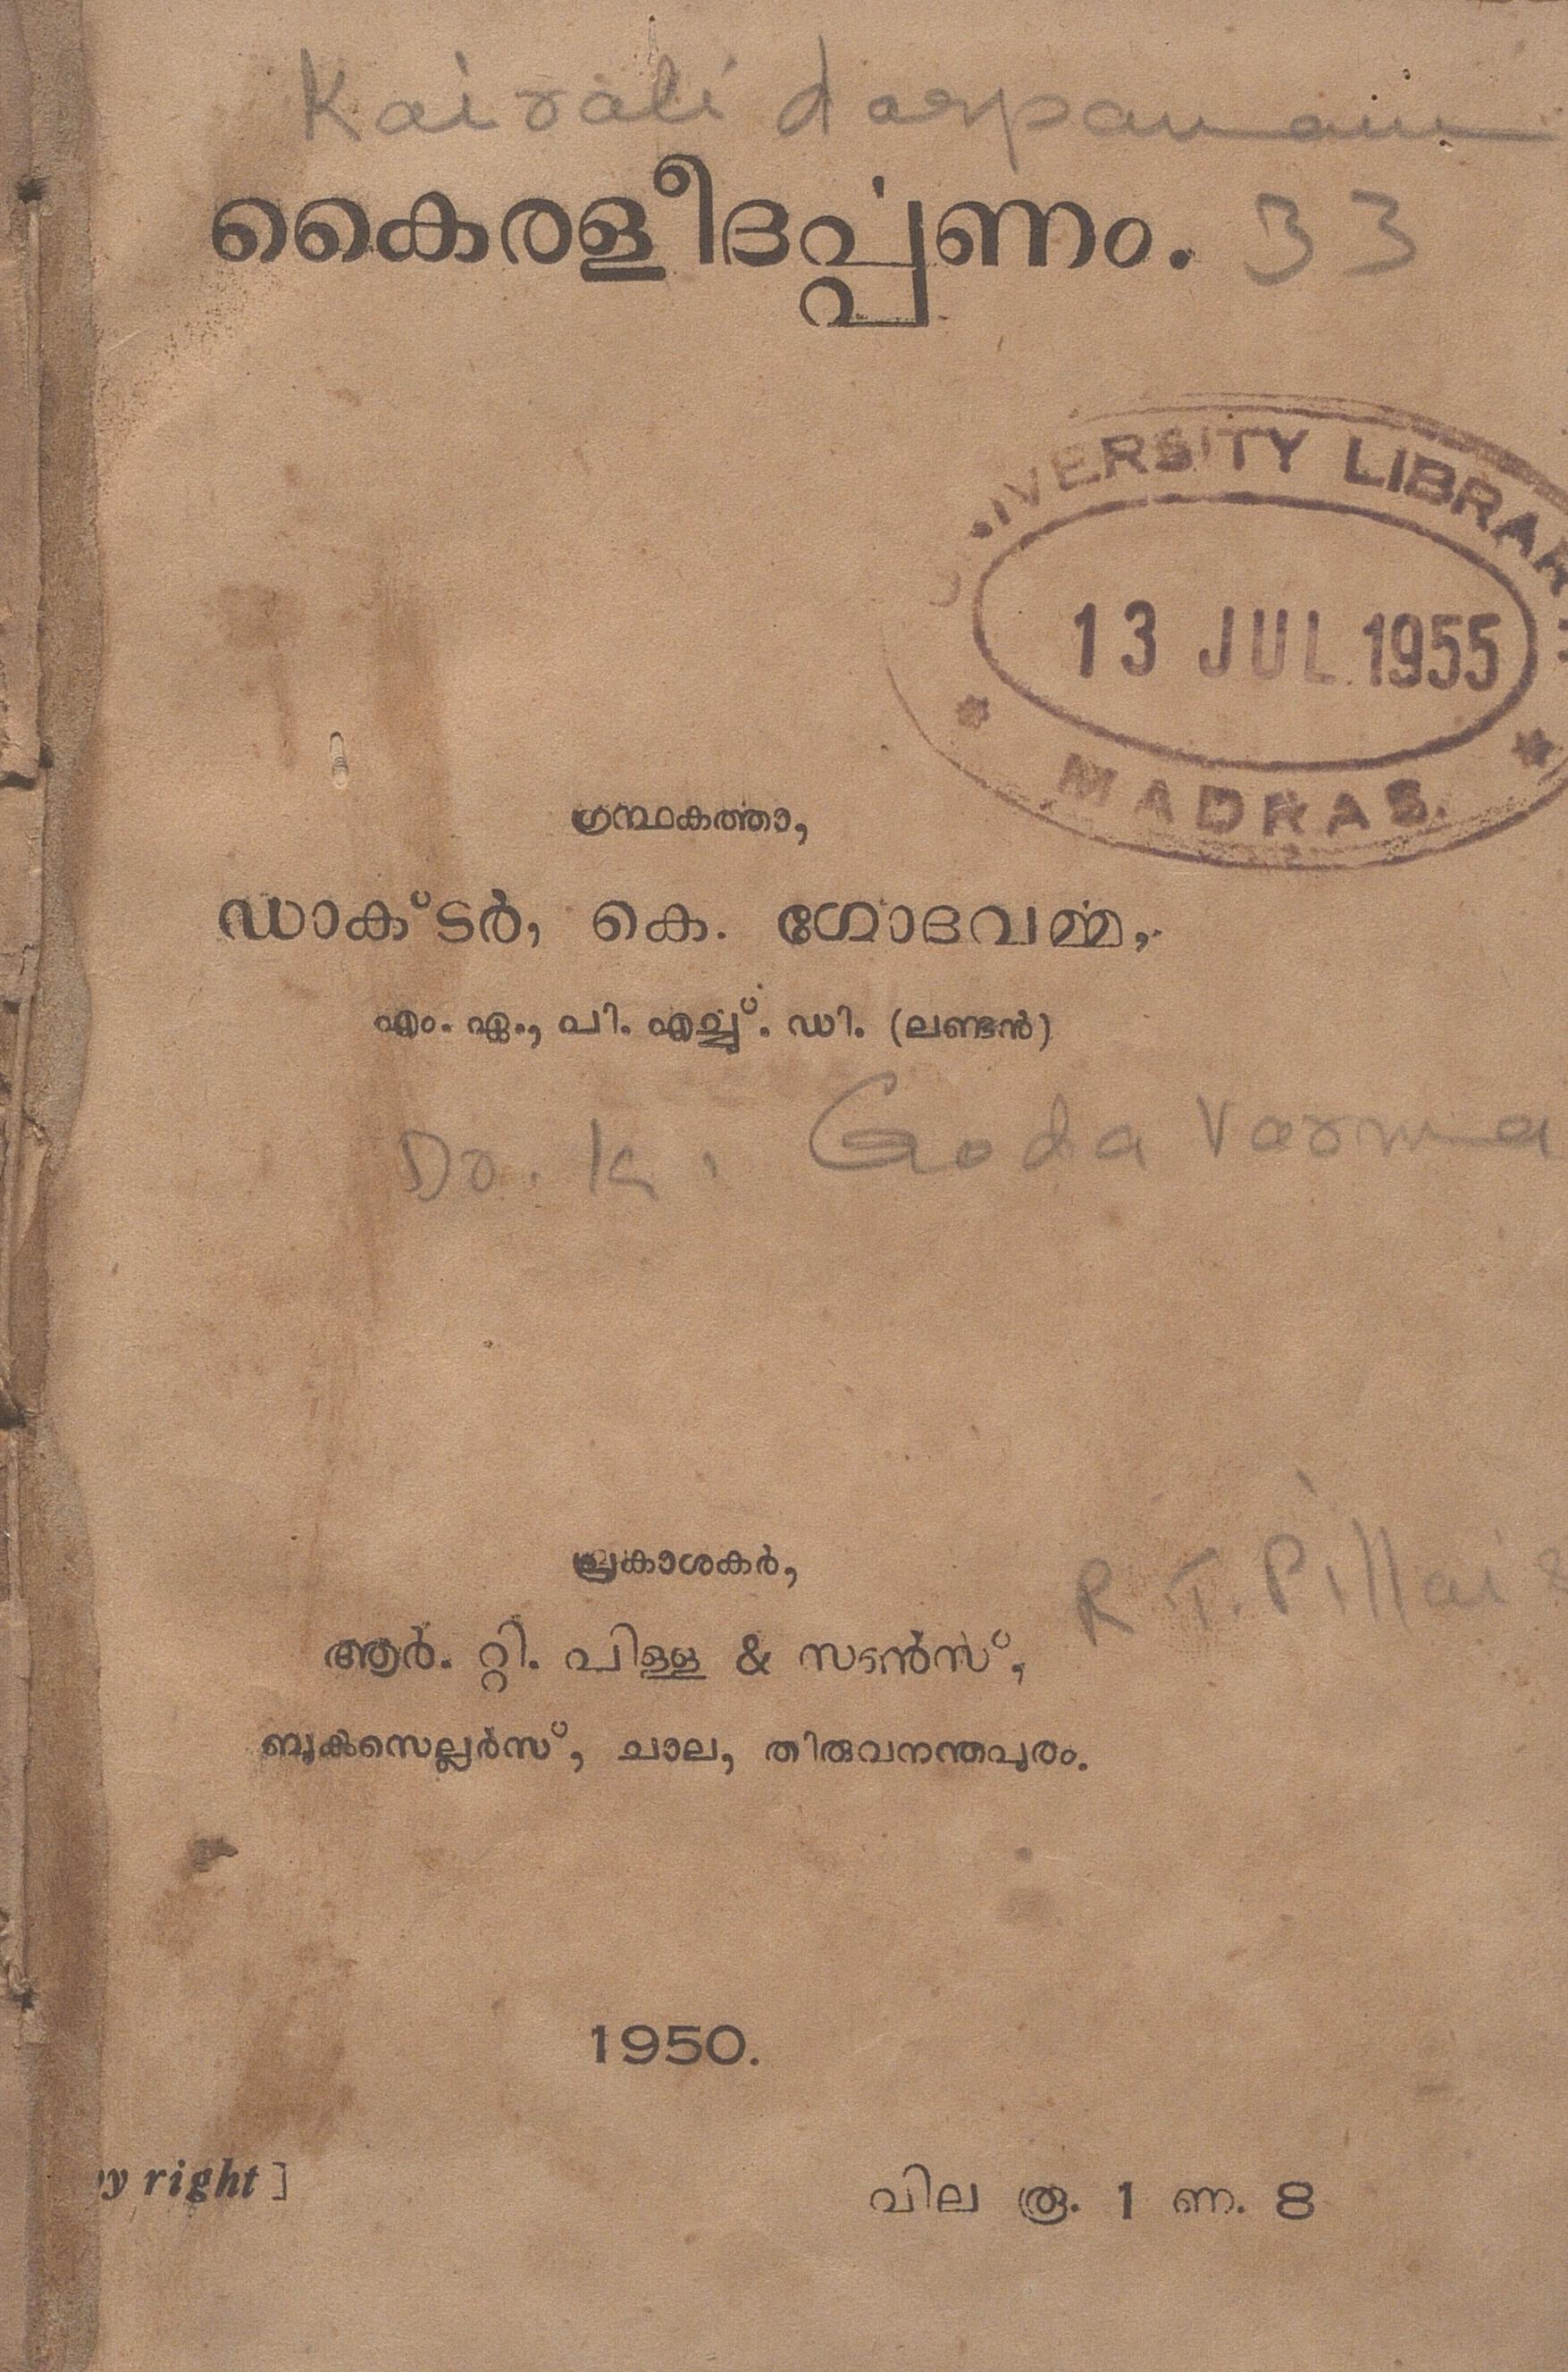 Kairali darpanam
കൈരളീദൎപ്പണം. 33
UNIVERSITY LIBRARY
13 JUL 1955
MADRAS.
ഗ്രന്ഥകൎത്താ,
ഡാക്ടർ, കെ. ഗോദവൎമ്മ,
എം. ഏ., പി. എച്ച്. ഡി. (ലണ്ടൻ)
Dr. K. Goda Varma
പ്രകാശകർ,
R. T. Pillai &
ആർ. റ്റി. പിള്ള & സൺസ്,
ബുക്സെല്ലർസ്, ചാല, തിരുവനന്തപുരം.
1950.
py right]
വില രൂ. 1 ണ. 8